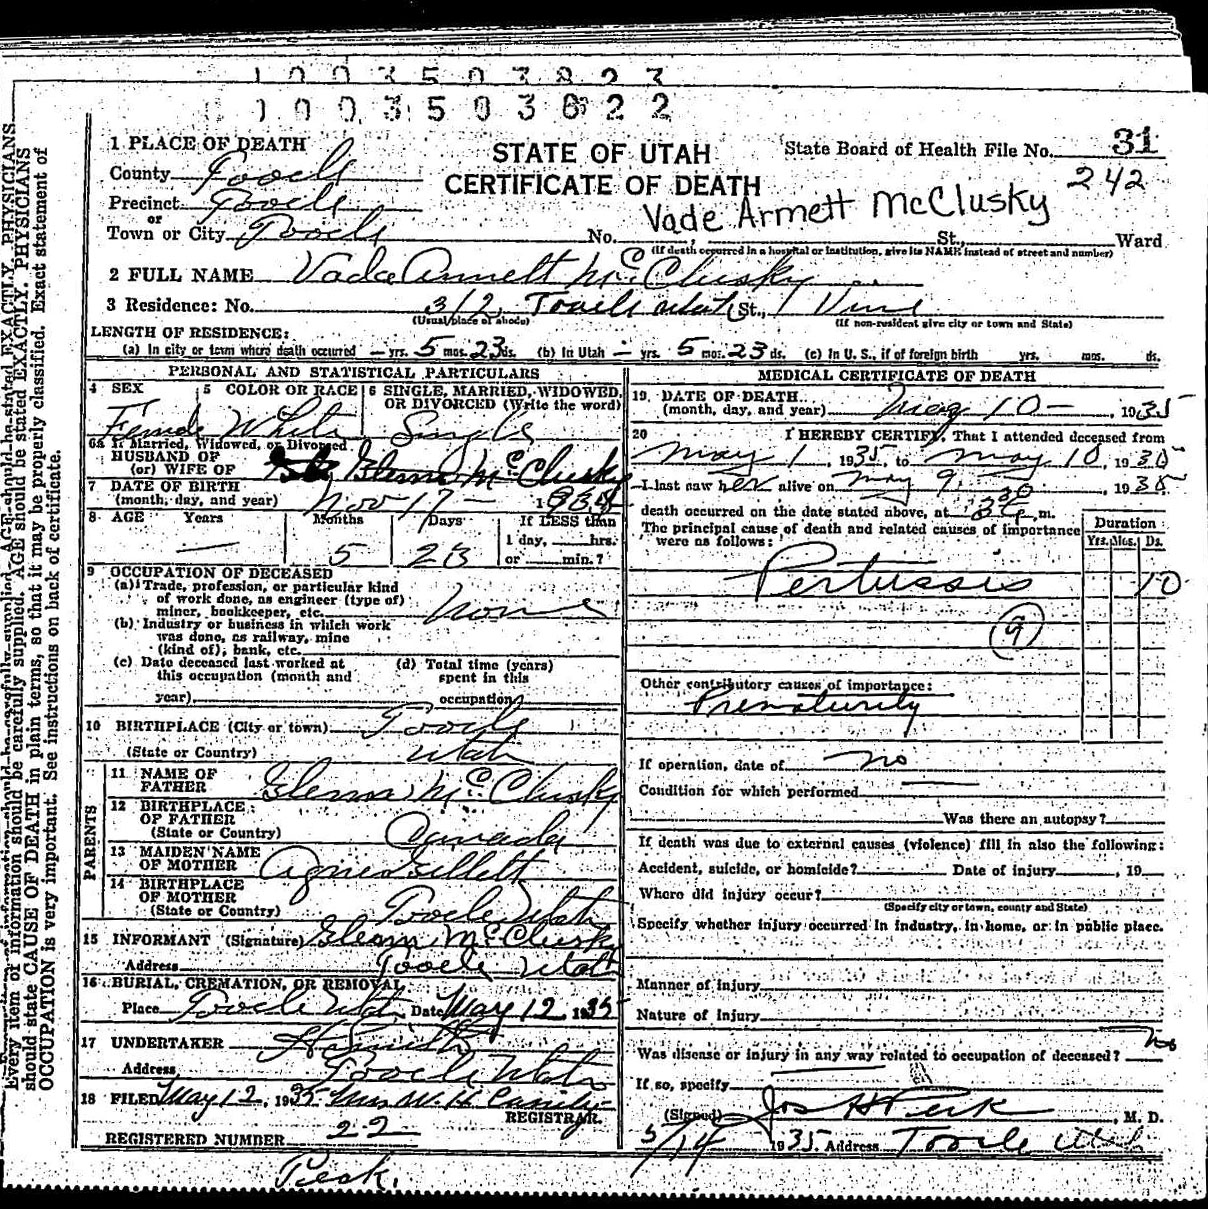 1003503823
1003503822
31
242
STATE OF UTAH
CERTIFICATE OF DEATH
State Board of Health File No.
1 PLACE OF DEATH
County Tooele
Precinct Tooele
or
Town or City Tooele No. St., Ward
Vade Armett McClusky
(If death occurred in a hospital or institution, give its NAME instead of street and number)
2 FULL NAME Vada Annett McClusky
3 Residence: No. 312, Tooele Utah St., Vine
(Usual place of abode) (If non-resident give city or town and State)
LENGTH OF RESIDENCE:
(a) In city or town where death occurred — yrs. 5 mos. 23 ds. (b) In Utah — yrs. 5 mos. 23 ds. (c) In U. S., if of foreign birth yrs. mos. ds.
PERSONAL AND STATISTICAL PARTICULARS
4 SEX Female
5 COLOR OR RACE White
6 SINGLE, MARRIED, WIDOWED, OR DIVORCED (Write the word) Single
6a If Married, Widowed, or Divorced
HUSBAND OF
(or) WIFE OF Glenn McClusky
7 DATE OF BIRTH
(month, day, and year) Nov 17 — 1934
8 AGE Years — Months 5 Days 23 If LESS than
1 day, hrs.
or min.?
9 OCCUPATION OF DECEASED
(a) Trade, profession, or particular kind
of work done, as engineer (type of)
miner, bookkeeper, etc. None
(b) Industry or business in which work
was done, as railway, mine
(kind of), bank, etc.
(c) Date deceased last worked at
this occupation (month and
year)
(d) Total time (years)
spent in this
occupation
10 BIRTHPLACE (City or town) Tooele
(State or Country) Utah
PARENTS
11 NAME OF
FATHER Glenn McClusky
12 BIRTHPLACE
OF FATHER
(State or Country) Canada
13 MAIDEN NAME
OF MOTHER Agnes Gillett
14 BIRTHPLACE
OF MOTHER
(State or Country) Tooele Utah
15 INFORMANT (Signature) Glenn McClusky
Address Tooele Utah
16 BURIAL, CREMATION, OR REMOVAL
Place Tooele Utah Date May 12 1935
17 UNDERTAKER
Address Tooele Utah
18 FILED May 12, 1935 Mrs W. H.
REGISTRAR.
REGISTERED NUMBER 22
Peck.
MEDICAL CERTIFICATE OF DEATH
19 DATE OF DEATH
(month, day, and year) May 10 — , 1935
20 I HEREBY CERTIFY, That I attended deceased from
May 1, 1935, to May 10, 1935
I last saw her alive on May 9, 1935
death occurred on the date stated above, at m.
The principal cause of death and related causes of importance
were as follows:
Duration
Yrs. Mos. Ds.
Pertussis 10
(9)
Other contributory causes of importance:
Prematurity
If operation, date of no
Condition for which performed
Was there an autopsy?
If death was due to external causes (violence) fill in also the following:
Accident, suicide, or homicide? Date of injury , 19
Where did injury occur?
(Specify city or town, county and State)
Specify whether injury occurred in industry, in home, or in public place.
Manner of injury
Nature of injury
Was disease or injury in any way related to occupation of deceased? No
If so, specify
(Signed) Jos H Peck , M. D.
5/14 1935 Address Tooele Utah
Every item of information should be carefully supplied. AGE should be stated EXACTLY. PHYSICIANS
should state CAUSE OF DEATH in plain terms, so that it may be properly classified. Exact statement of
OCCUPATION is very important. See instructions on back of certificate.